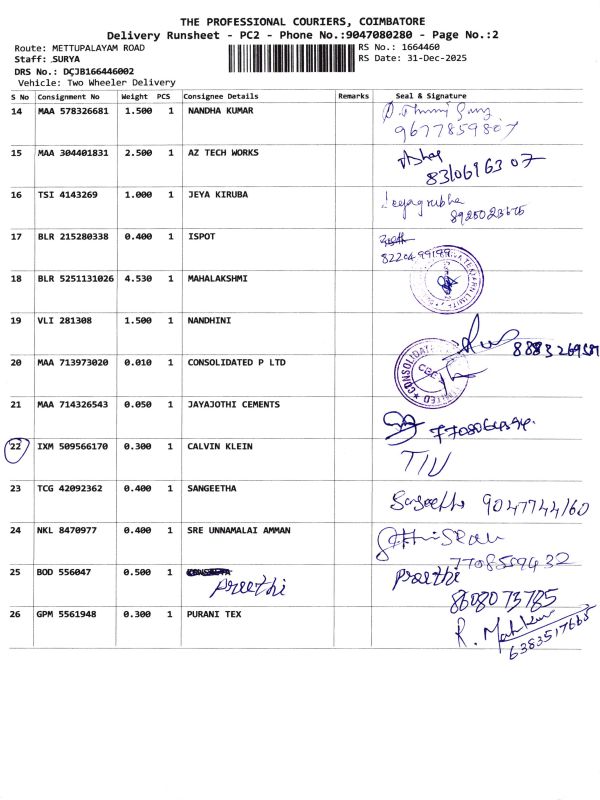 THE PROFESSIONAL COURIERS, COIMBATORE
Delivery Runsheet - PC2 - Phone No.:9047080280 - Page No.:2
Route: METTUPALAYAM ROAD RS No.: 1664460
Staff: SURYA RS Date: 31-Dec-2025
DRS No.: DCJB166446002
Vehicle: Two Wheeler Delivery
S No Consignment No Weight PCS Consignee Details Remarks Seal & Signature
14 MAA 578326681 1.500 1 NANDHA KUMAR
9677859807
15 MAA 304401831 2.500 1 AZ TECH WORKS
8310696307
16 TSI 4143269 1.000 1 JEYA KIRUBA
17 BLR 215280338 0.400 1 ISPOT
18 BLR 5251131026 4.530 1 MAHALAKSHMI
19 VLI 281308 1.500 1 NANDHINI
20 MAA 713973020 0.010 1 CONSOLIDATED P LTD
CONSOLIDATED
CBE
21 MAA 714326543 0.050 1 JAYAJOTHI CEMENTS
22 IXM 509566170 0.300 1 CALVIN KLEIN
23 TCG 42092362 0.400 1 SANGEETHA
Sangeetha 9047744160
24 NKL 8470977 0.400 1 SRE UNNAMALAI AMMAN
25 BOD 556047 0.500 1 Preethi Preethi
8608073785
26 GPM 5561948 0.300 1 PURANI TEX
6383517665